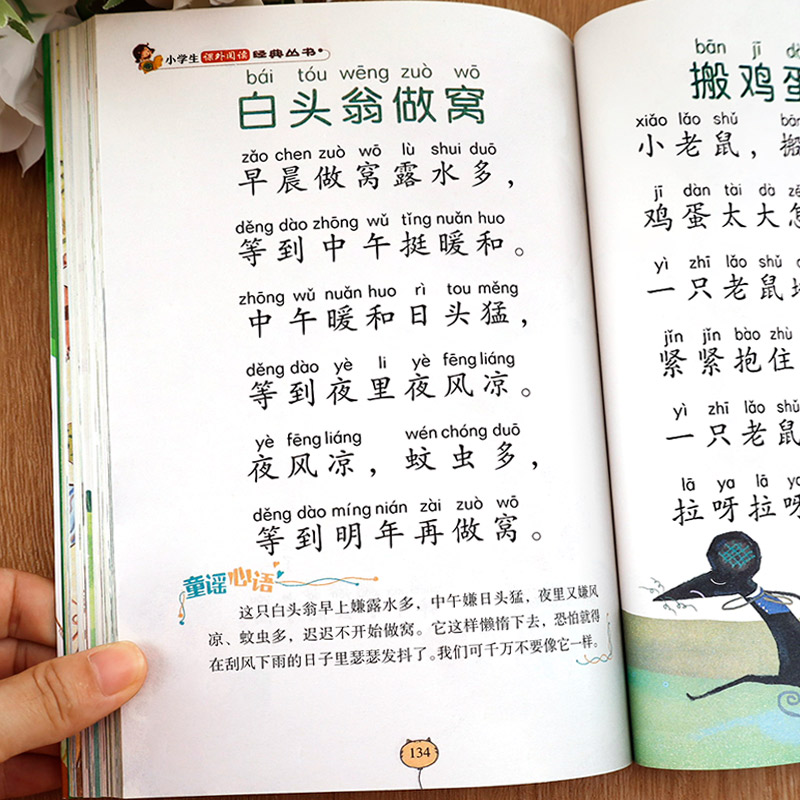 小学生 课外阅读 经典丛书
bái tóu wēng zuò wō
白头翁做窝
zǎo chen zuò wō lù shui duō
早晨做窝露水多，
děng dào zhōng wǔ tǐng nuǎn huo
等到中午挺暖和。
zhōng wǔ nuǎn huo rì tou měng
中午暖和日头猛，
děng dào yè li yè fēng liáng
等到夜里夜风凉。
yè fēng liáng wén chóng duō
夜风凉，蚊虫多，
děng dào míng nián zài zuò wō
等到明年再做窝。
童谣心语
这只白头翁早上嫌露水多，中午嫌日头猛，夜里又嫌风
凉、蚊虫多，迟迟不开始做窝。它这样懒惰下去，恐怕就得
在刮风下雨的日子里瑟瑟发抖了。我们可千万不要像它一样。
134
bān jī
搬鸡蛋
xiǎo lǎo shǔ
小老鼠，搬
jī dàn tài dà zě
鸡蛋太大怎
yì zhī lǎo shǔ
一只老鼠
jǐn jǐn bào zhù
紧紧抱住
yì zhī lǎo shǔ
一只老鼠
lā ya lā ya
拉呀拉呀